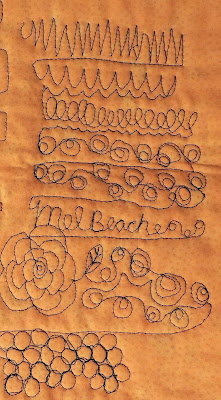 Mel Beach